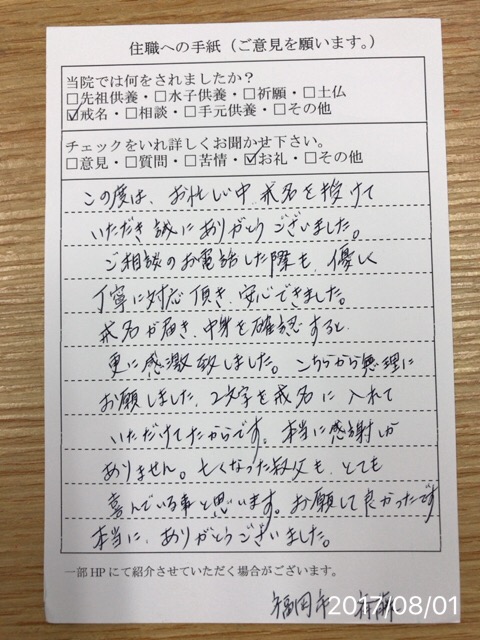 住職への手紙（ご意見を願います。）
当院では何をされましたか？
□先祖供養・□水子供養・□祈願・□土仏
☑戒名・□相談・□手元供養・□その他
チェックをいれ詳しくお聞かせ下さい。
□意見・□質問・□苦情・☑お礼・□その他
この度は、お忙しい中 戒名を授けて
いただき誠にありがとうございました。
ご相談のお電話した際も、優しく
丁寧に対応頂き、安心できました。
戒名が届き、中身を確認すると
更に感激致しました。こちらから無理に
お願いしました、2文字を戒名に入れて
いただけてたからです。本当に感謝しか
ありません。亡くなった叔父も、とても
喜んでいる事と思います。お願いして良かったです
本当に、ありがとうございました。
一部HPにて紹介させていただく場合がございます。
福岡市
2017/08/01